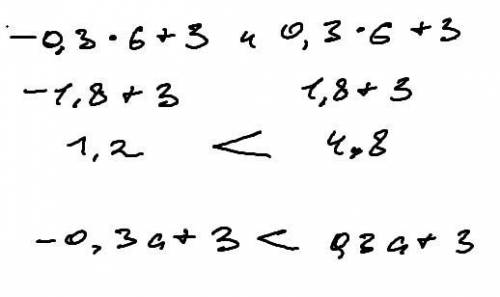 -0,3·6+3 и 0,3·6+3
-1,8+3 1,8+3
1,2 < 4,8
-0,3a+3 < 0,3a+3